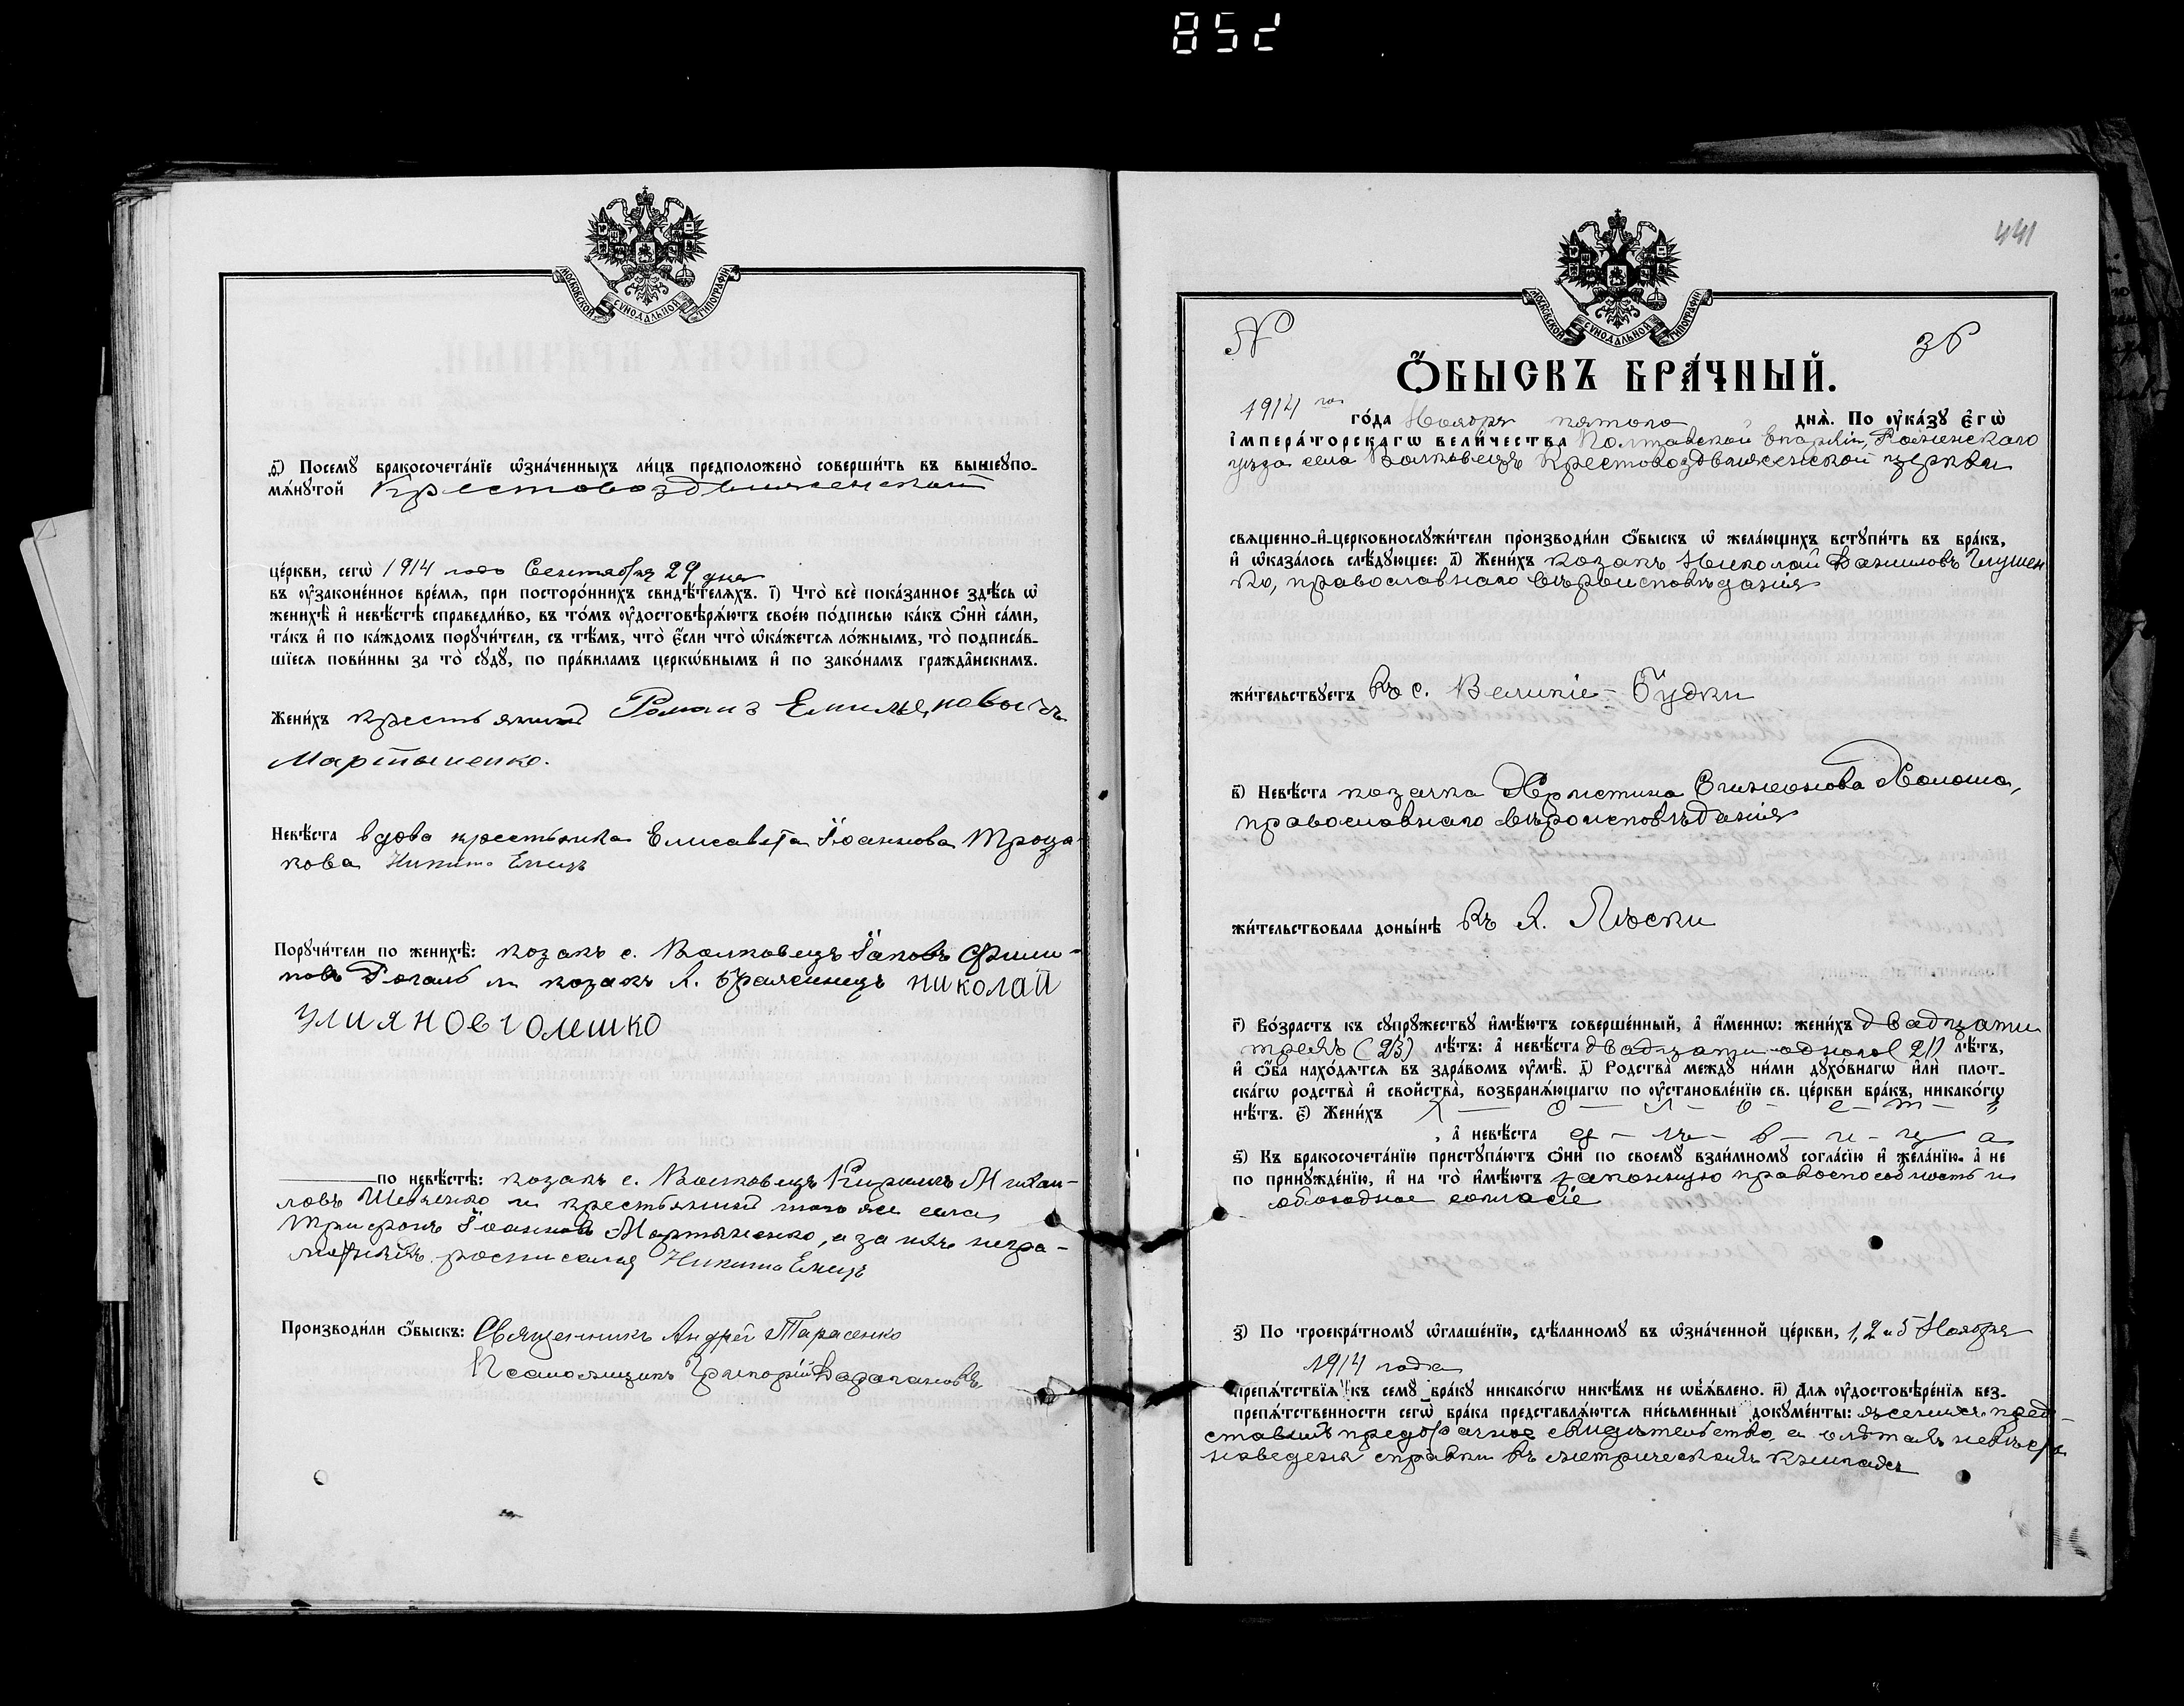 852
МОСКОВСКОЙ СѴНОДАЛЬНОЙ ТИПОГРАФІИ
ѳ҃) Посемꙋ бракосочета́нїе ѡ҆зна́ченныхъ ли́цъ предположено̀ соверши́ть въ вышеупо-
мѧ́нꙋтой Крестовоздвиженской
це́ркви, сегѡ̀ 1914 года Сентября 29 дня
въ ᲂу҆зако́ненное вре́мѧ, при посторо́ннихъ свидѣ́телѧхъ. і҃) Что̀ всѐ пока́занное здѣ́сь ѡ҆
женихѣ̀ и҆ невѣ́стѣ справедли́во, въ то́мъ ᲂу҆достовѣрѧ́ютъ свое́ю по́дписью ка́къ ѻ҆нѝ са́ми,
та́къ и҆ по ка́ждомъ порꙋчи́тели, съ тѣ́мъ, что̀ є҆́сли что̀ ѡ҆ка́жетсѧ ло́жнымъ, то̀ подписа́в-
шїесѧ пови́нны за то̀ сꙋдꙋ̀, по пра́виламъ церкѡ́внымъ и҆ по зако́намъ гражда̂нскимъ.
Жени́хъ крестьянинъ Романъ Емильяновичъ
Мартыненко.
Невѣ́ста вдова крестьянка Елисавета Іоаннова
Никита Емецъ
Порꙋчи́тели по женихѣ̀: козакъ с. Волковецъ Іаковъ Филип-
повъ Рогаль и козакъ д. НИКОЛАЙ
УЛИЯНОВ ГОЛЕШКО
по невѣ́стѣ: козакъ с. Волковецъ Кириллъ Михаи-
ловъ Шевченко и крестьянинъ того же села
Трифонъ Іоанновъ Мартыненко, а за нихъ негра-
мотныхъ росписался Никита Емецъ
Производи́ли ѻ҆́быскъ: Священникъ Андрей Тарасенко
Псаломщикъ Григорій
441
МОСКОВСКОЙ СѴНОДАЛЬНОЙ ТИПОГРАФІИ
№ 36
Ѻ҆́БЫСКЪ БРА́ЧНЫЙ.
1914 го го́да Ноября пятого днѧ̀. По ᲂу҆ка́зꙋ є҆гѡ̀
і҆мпера́торскагѡ вели́чества Полтавской Епархіи, Роменского
уезда села Волковецъ Крестовоздвиженской церкви
свѧщенно-и҆-церковнослꙋжи́тели производи́ли ѻ҆́быскъ ѡ҆ жела́ющихъ встꙋпи́ть въ бра́къ,
и҆ ѡ҆каза́лось слѣ́дꙋющее: а҃) Жени́хъ козакъ Николай Даниловъ Глушен
ко, православнаго вероисповѣданія
жи́тельствꙋетъ въ с. Великіе-Будки
в҃) Невѣ́ста козачка Христина Симеонова Холоша,
православнаго вѣроисповѣданія
жи́тельствовала доны́нѣ въ д. Пѣски
г҃) Во́зрастъ къ сꙋпрꙋ́жествꙋ и҆мѣ́ютъ соверше́нный, а҆ и҆́меннѡ: жени́хъ двадцати
трехъ (23) лѣ́тъ: а҆ невѣ́ста двадцати одного (21) лѣ́тъ,
и҆ ѻ҆́ба нахо́дѧтсѧ въ здра́вомъ ᲂу҆мѣ̀. д҃) Родства̀ междꙋ ни́ми дꙋхо́внагѡ и҆лѝ плот-
ска́гѡ родства̀ и҆ сво́йства, возбранѧ́ющагѡ по ᲂу҆становле́нїю св. це́ркви бра́къ, никако́гѡ
нѣ́тъ. є҃) Жени́хъ х — о — л — о — с — т — ъ
, а҆ невѣ́ста д — ѣ — в — и — ц — а
ѕ҃) Къ бракосочета́нїю пристꙋпа́ютъ ѻ҆нѝ по своемꙋ̀ взаи́мномꙋ согла́сїю и҆ жела́нїю, а҆ не
по принꙋжде́нїю, и҆ на то̀ и҆мѣ́ютъ законную правоспособность и
обоюдное согласіе
з҃) По троекра́тномꙋ ѡ҆глаше́нїю, сдѣ́ланномꙋ въ ѡ҆зна́ченной це́ркви, 1, 2 и 5 Ноября
1914 года
препѧ́тствїѧ къ семꙋ̀ бра́кꙋ никако́гѡ никѣ́мъ не ѡ҆б̾ѧ́влено. и҃) Для ᲂу҆достовѣре́нїѧ без-
препѧ́тственности сегѡ̀ бра́ка представлѧ́ютсѧ пи́сьменныѧ докꙋме́нты: женихъ пред-
ставилъ предбрачное свидѣтельство, а о лѣтахъ невѣсты
наведена справка въ метрическихъ книгахъ